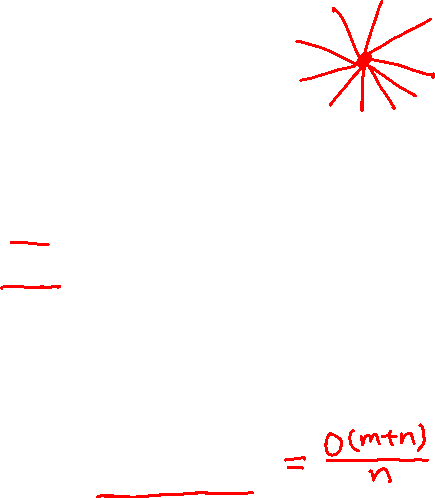 = O(m+n)/n